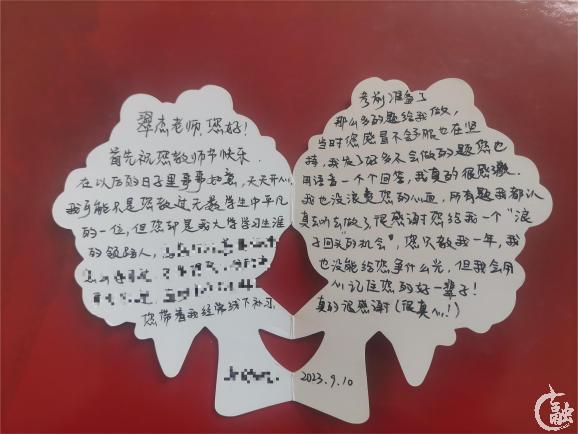 翠杰老师,您好!
首先祝您教师节快乐.
在以后的日子里事事如意,天天开心!
我可能只是您教过无数学生中平凡
的一位,但您却是我大学学习生涯
的领路人,
您带着我经常线下补习.
考前准备了
那么多的题给我做,
当时您感冒不舒服也在坚
持,我发了好多不会做的题您也
用语音一个个回答,我真的很感激.
我也没浪费您的心血,所有题我都认
真的去做了.很感谢您给我一个“浪
子回头的机会”,您只教我一年,我
也没能给您争什么光,但我会用
心记住您的好一辈子!
真的很感谢(很真心!)
2023.9.10
融